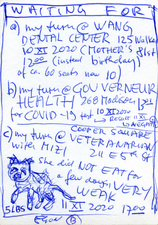 WAITING FOR
a) my turn @ WANG
DENTAL CENTER 125 Walker
10 XI 2020 (MOTHER'S 91st
1200 (instead birthday)
of ca. 60 seats now 10)
b) my turn @ GOUVERNEUR
HEALTH 268 Madison
for COVID-19 test 10 XI 2020
RESULT 11 XI
c) my turn @ COOPER SQUARE
with MIZI VETERANARIAN
211 E 5th St
She did NOT EAT for
a few days VERY
WEAK
5 LBS
11 XI 2020 1700
EGON